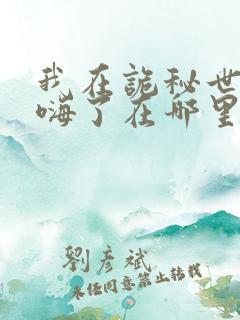 我在詭秘世
嗨了在哪里
劉彥斌
未经同意禁止转载